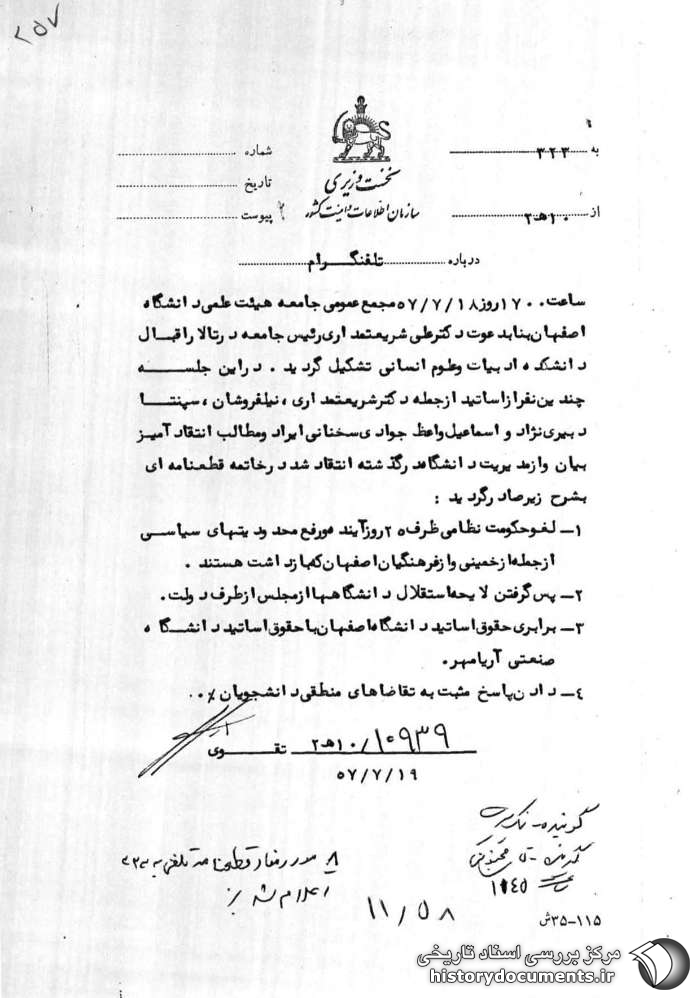 ۲۵۷
به ۳۲۳
شماره
از ۱۰هـ۲
نخست وزیری
تاریخ
سازمان اطلاعات و امنیت کشور
پیوست
درباره تلفنگرام
ساعت ۱۷۰۰ روز ۵۷/۷/۱۸ مجمع عمومی جامعه هیئت علمی دانشگاه
اصفهان بنابدعوت دکترعلی شریعتمداری رئیس جامعه درتالار اقبال
دانشکده ادبیات وعلوم انسانی تشکیل گردید . دراین جلسه
چندین نفرازاساتید ازجمله دکترشریعتمداری ، نیلفروشان ، سپنتا
دبیری نژاد و اسماعیل واعظ جوادی سخنانی ایراد ومطالب انتقاد آمیز
بیان وازمدیریت دانشگاه درگذشته انتقاد شد درخاتمه قطعنامه ای
بشرح زیرصادرگردید :
۱ـ لغوحکومت نظامی ظرف ۲۰ روزآینده ورفع محدودیتهای سیاسی
ازجمله ازخمینی وازفرهنگیان اصفهان که بازداشت هستند .
۲ـ پس گرفتن لایحه استقلال دانشگاهها ازمجلس ازطرف دولت.
۳ـ برابری حقوق اساتید دانشگاه اصفهان با حقوق اساتید دانشگاه
صنعتی آریامهر.
۴ـ دادن پاسخ مثبت به تقاضاهای منطقی دانشجویان ٪.
تقوی ۱۰هـ۲/۱۰۹۳۹
۵۷/۷/۱۹
گوینده
۱۱۴۵
قطعنامه تلفنی به ۳۲۳
اعلام شد
۱۱/۵۸
۱۱۵-۳۵ش
مرکز بررسی اسناد تاریخی
historydocuments.ir